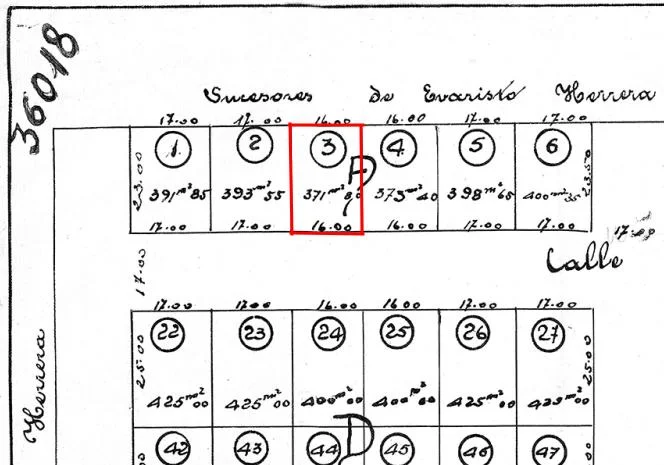 36018
Sucesores de Evaristo Herrera
17.00 17.00 16.00 16.00 17.00 17.00
1 2 3 4 5 6
F
23.00 391m²85 393m²55 371m²80 373m²40 398m²65 400m²35 23.50
17.00 17.00 16.00 16.00 17.00 17.00
17.00
Calle
17.00
17.00 17.00 16.00 16.00 17.00 17.00
22 23 24 25 26 27
25.00 425m²00 425m²00 400m²00 400m²00 425m²00 425m²00 25.00
Herrera
D
42 43 44 45 46 47